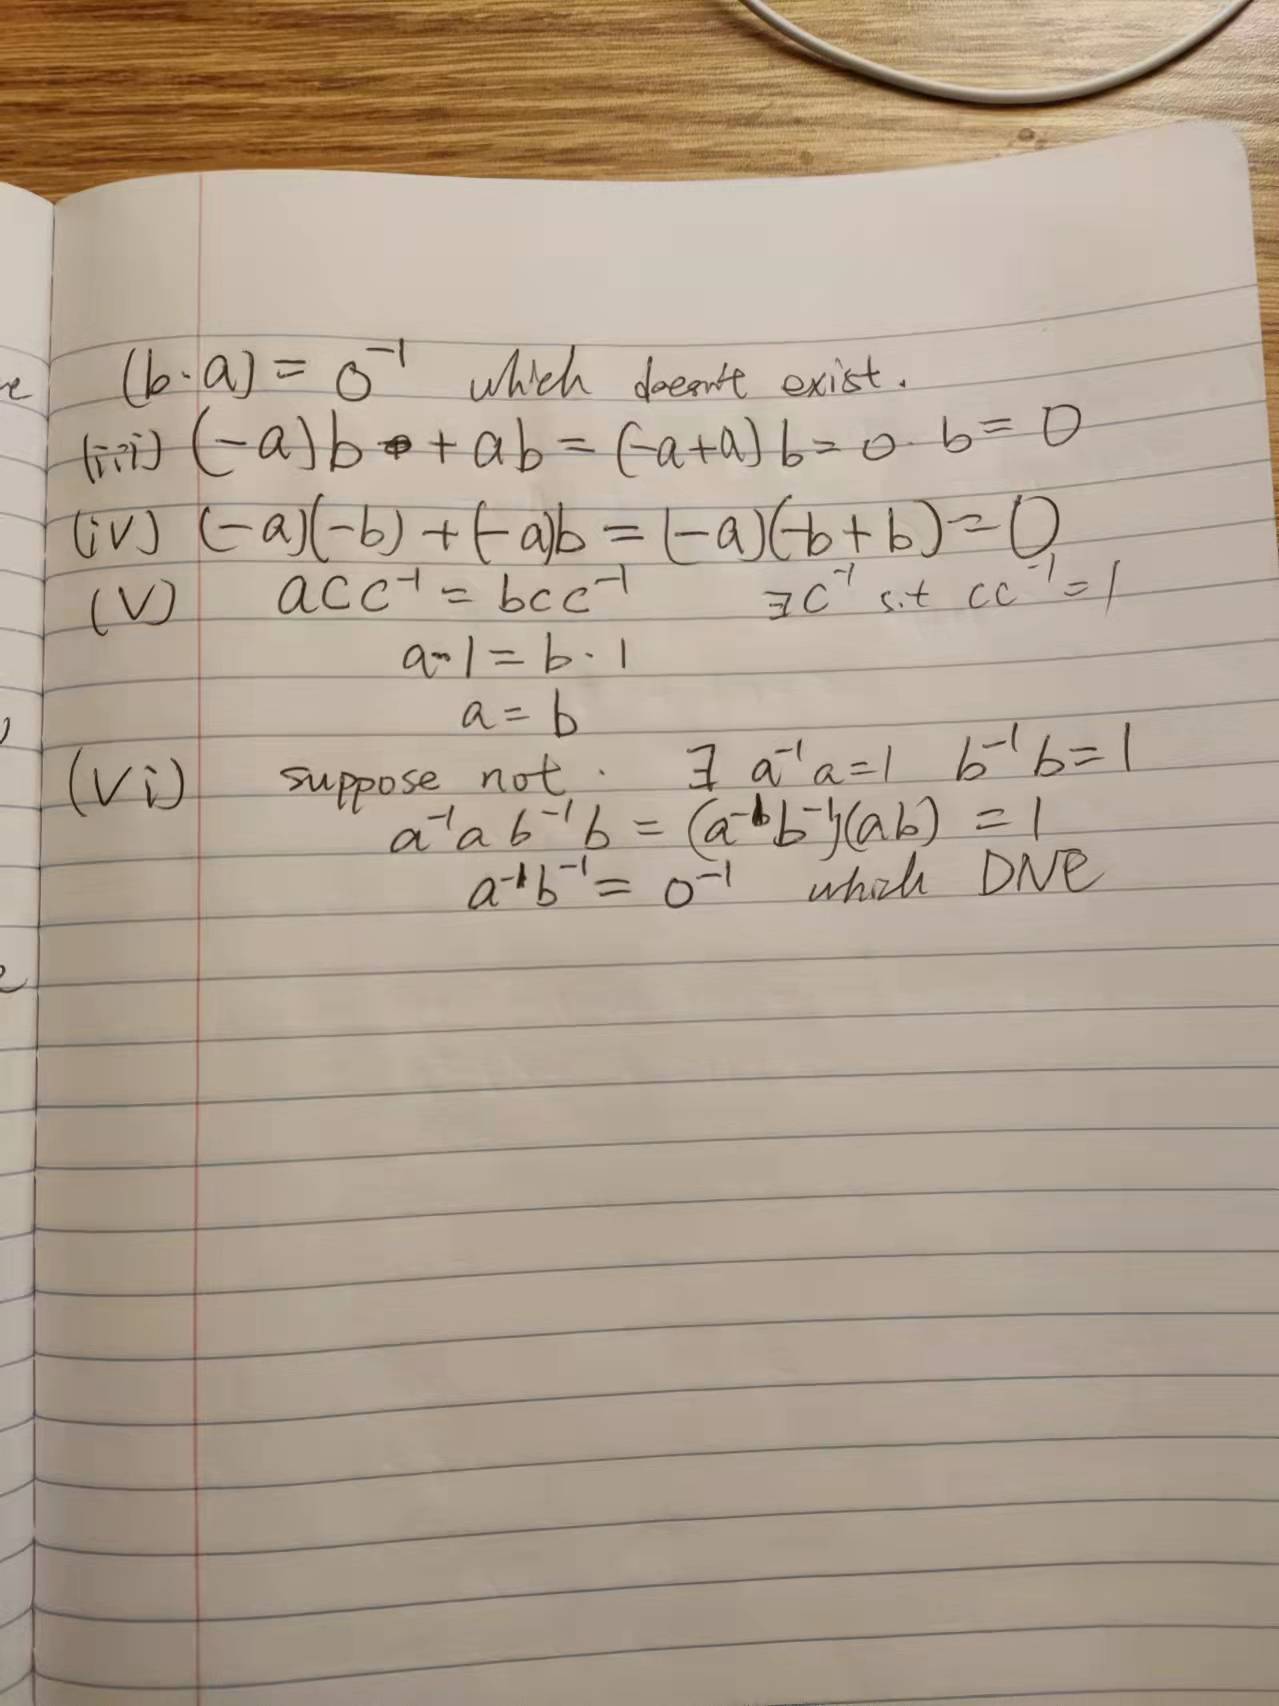 (b·a) = 0⁻¹ which doesn't exist.
(iii) (-a)b + ab = (-a+a)b = 0·b = 0
(iv) (-a)(-b) + (-a)b = (-a)(-b+b) = 0
(V) acc⁻¹ = bcc⁻¹ ∃c⁻¹ s.t cc⁻¹ = 1
a·1 = b·1
a = b
(Vi) suppose not. ∃ a⁻¹a=1 b⁻¹b=1
a⁻¹a b⁻¹b = (a⁻¹b⁻¹)(ab) = 1
a⁻¹b⁻¹ = 0⁻¹ which DNE